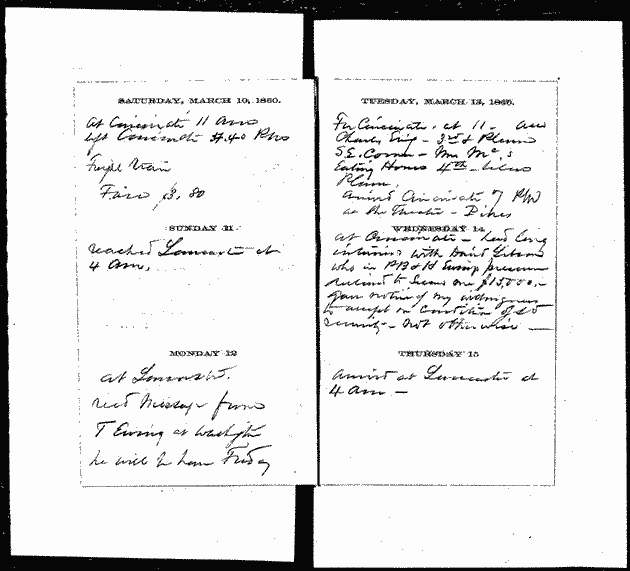 SATURDAY, MARCH 10, 1860.
at Cincinnati 11 am
left Cincinnati 4.40 PM
Freight train
Fare $3.80
SUNDAY 11
reached Lancaster at
4 am.
MONDAY 12
at Lancaster.
recd Message from
T Ewing at Washgtn
he will be home Friday
TUESDAY, MARCH 13, 1860.
For Cincinnati at 11 - am
Charles - 3rd & Plum
S.E. Corner - Mc's
Eating House 4th
Plum,
arrived Cincinnati 7 PM
at the Theatre - Pikes
WEDNESDAY 14
at Cincinnati - had long
interview with David Gibson
who in Ewing
to secure me $15,000.-
gave notice of my willingness
to accept on condition of
security - not otherwise -
THURSDAY 15
arrived at Lancaster at
4 am -